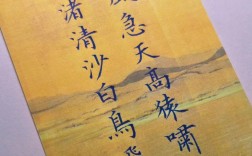 急天高猿嘯
渚清沙白鳥